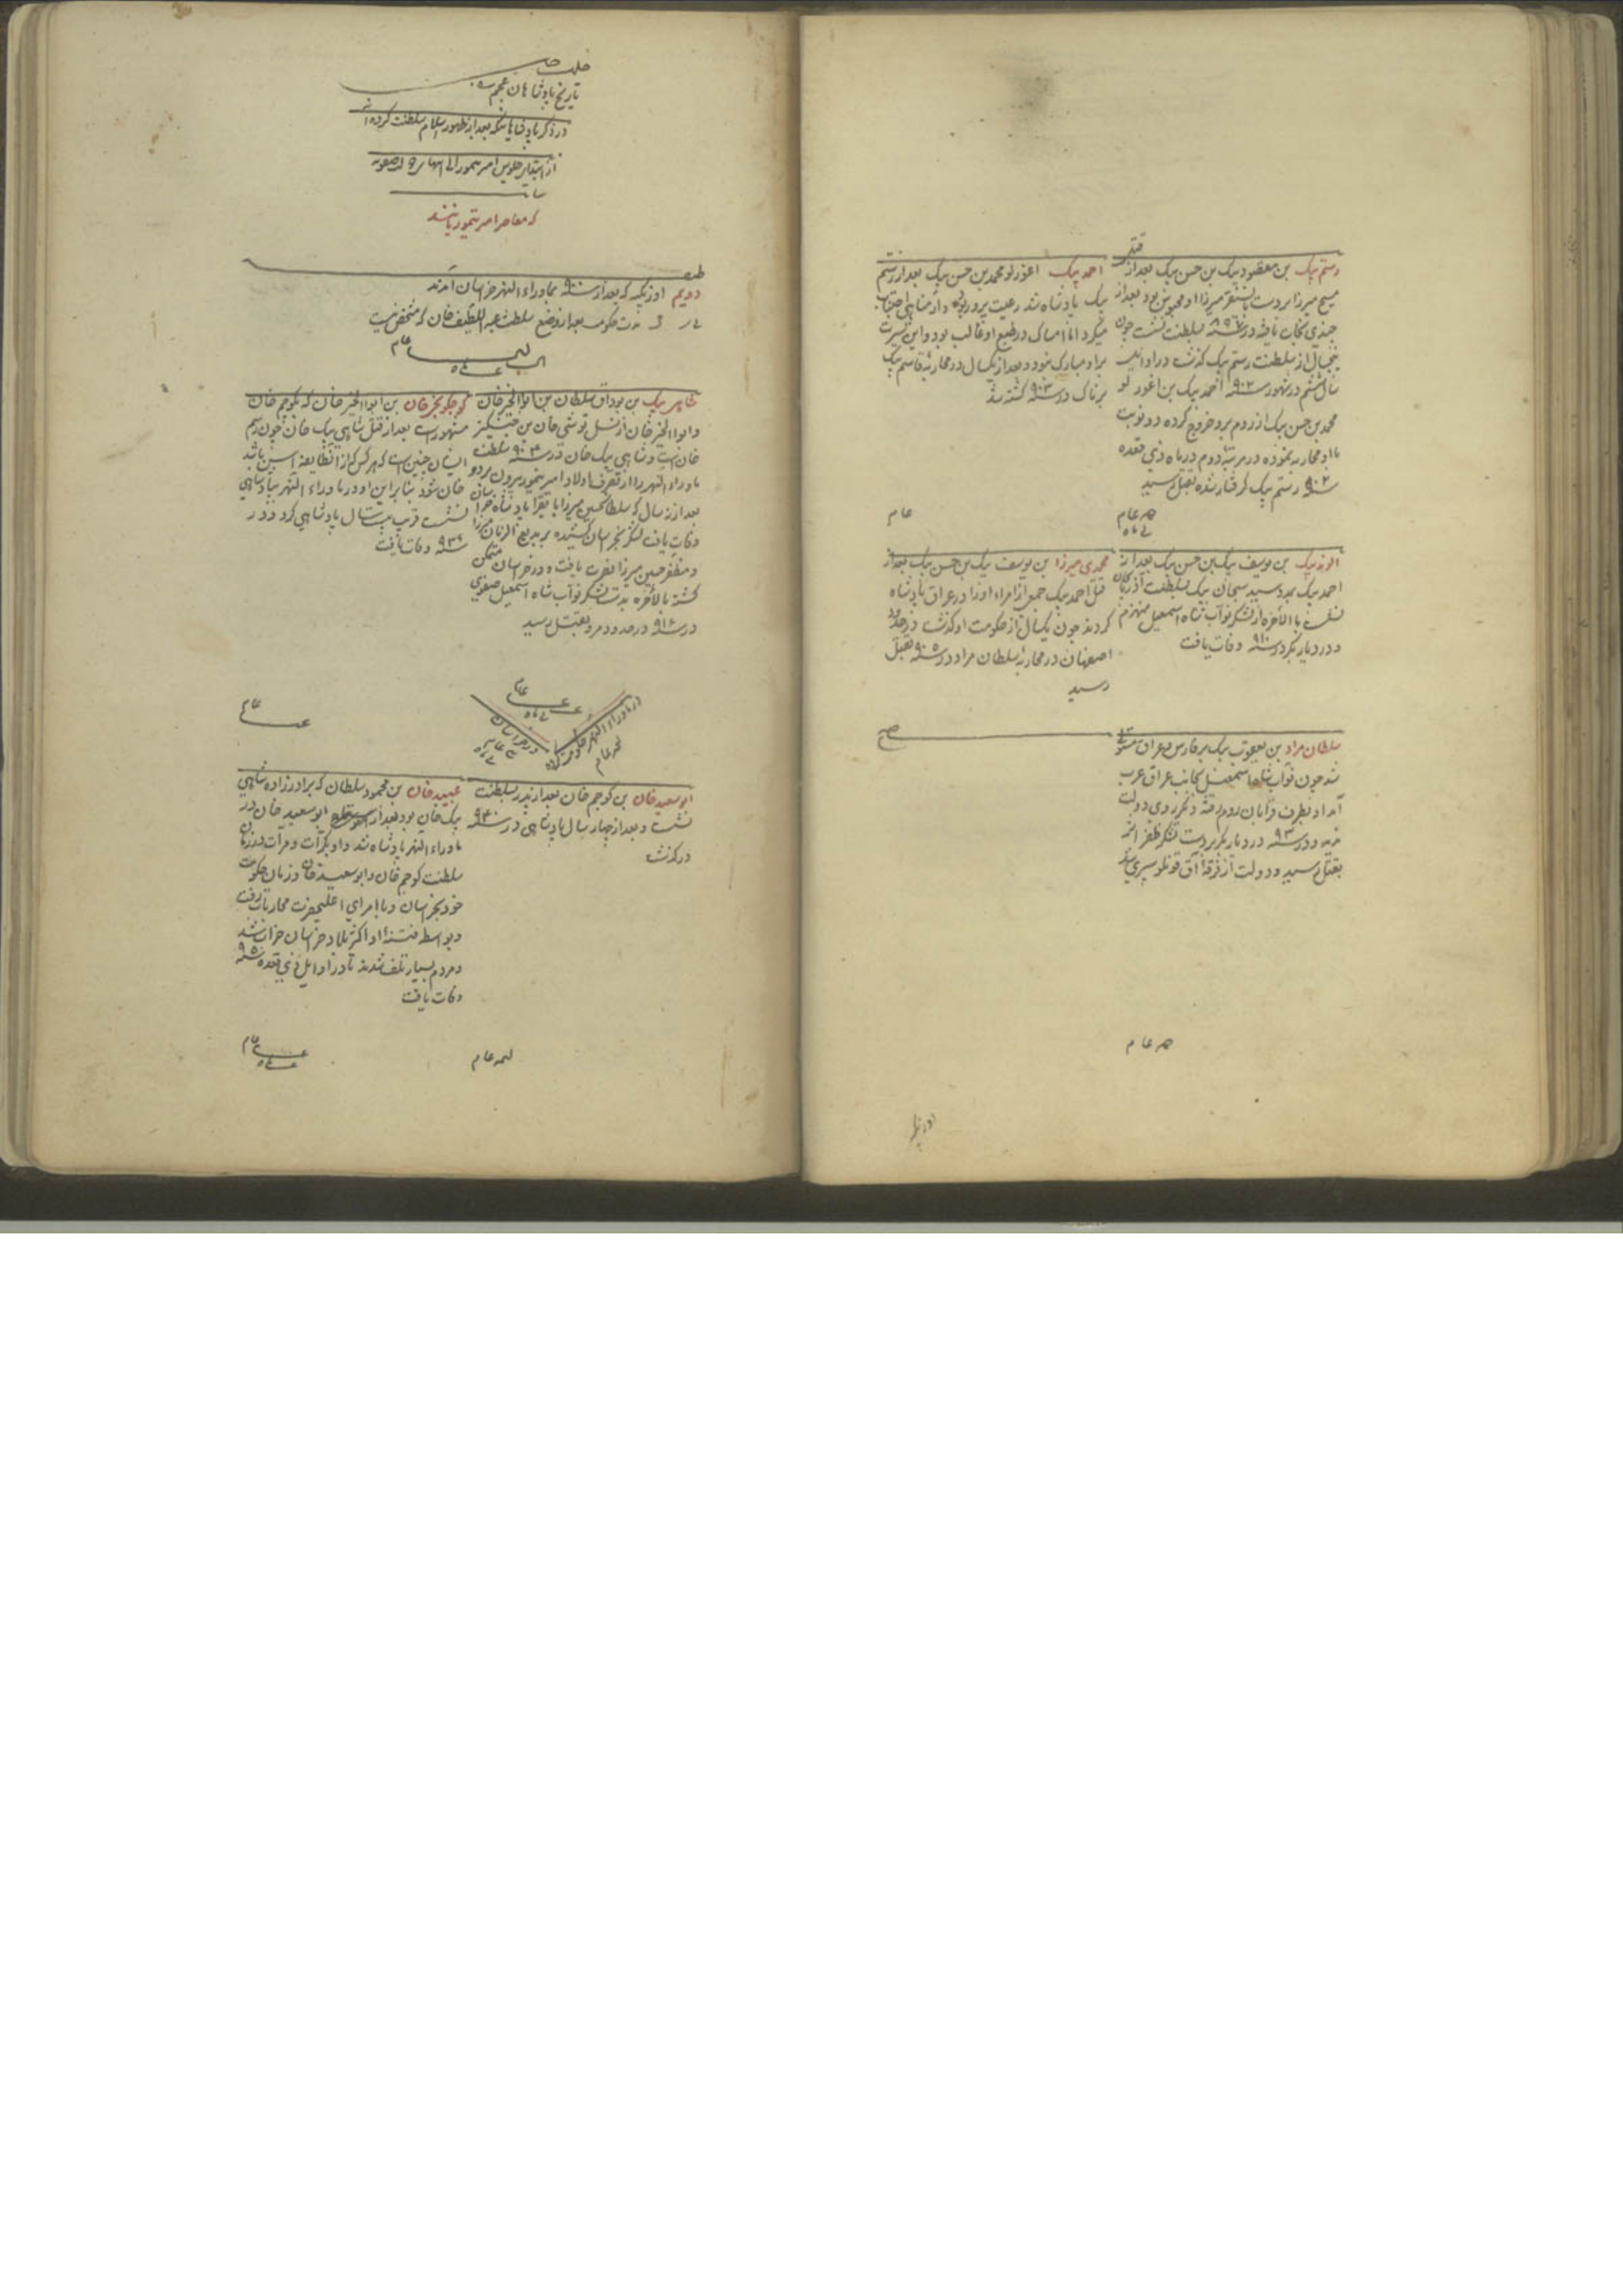 رستم بیک بن مقصود بیک بن حسن بیک بعد از قتل
مسیح میرزا بر دست بایسنقر میرزا او محبوس بود بعد از
چندی نجات یافته در سنه ۸۹۷ بسلطنت نشست چون
پنجسال از سلطنت رستم بیک گذشت در اوایل
سال ششم در شهور سنه ۹۰۲ احمد بیک بن اغورلو
محمد بن حسن بیک از روم برو خروج کرده دو نوبت
با او محاربه نموده در مرتبه دوم در ماه ذی قعده
سنه ۹۰۲ رستم بیک گرفتار شده بقتل رسید
احمد بیک اغورلو محمد بن حسن بیک بعد از رستم
بیک پادشاه شد رعیت پرور بود و از مناهی اجتناب
میکرد اما امساک در طبع او غالب بود و این سیرت
برو مبارک نبود و بعد از یکسال در محاربه قاسم بیک
پرناک در سنه ۹۰۳ کشته شد
عام
الوند بیک بن یوسف بیک بن حسن بیک بعد از
احمد بیک بمدد سید سجان بیک بسلطنت آذربایجان
نشست بالاخره از لشکر نواب شاه اسمعیل منهزم
و در دیار بکر در سنه ۹۱۰ وفات یافت
محمدی میرزا بن یوسف بیک بن حسن بیک بعد از
قتل احمد بیک جمعی از امراء او را در عراق پادشاه
کردند چون یکسال از حکومت او گذشت در حدود
اصفهان در محاربه سلطان مراد در سنه ۹۰۵ بقتل
رسید
سلطان مراد بن یعقوب بیک بر فارس و عراق مستولی
شد چون نواب شاه اسمعیل بجانب عراق عرب
آمد او بطرف قرامان روم رفته دیگر روی دولت
ندید و در سنه ۹۳۰ در دیار بکر بر دست لشکر ظفر اثر
بقتل رسید و دولت از فرقه آق قونلو سپری شد
عام
اوزبکیه
تاریخ پادشاهان عجم
در ذکر پادشاهانیکه بعد از ظهور اسلام سلطنت کرده اند
از ابتدای جلوس امیر تیمور الی
که معاصر امیر تیمور یانند
طبقه
دویم اوزبکیه که بعد از سنه ۹۰۰ بماوراء النهر و خراسان آمدند
مدت حکومت بعد از وضع سلطنت عبد اللطیف خان که مشخص نیست
عام
شاهی بیک بن بوداق سلطان بن ابوالخیر خان
و ابوالخیر خان از نسل توشی خان بن چنگیز
خان است و شاهی بیک خان در سنه ۹۰۴ سلطنت
ماوراء النهر را از تصرف اولاد امیر تیمور بیرون برد و
بعد از نه سال که سلطان حسین میرزا بایقرا پادشاه خراسان
وفات یافت لشکر بخراسان کشیده بر بدیع الزمان میرزا
و مظفر حسین میرزا نصرت یافت و در خراسان متمکن
گشته بالاخره بدست لشکر نواب شاه اسمعیل صفوی
در سنه ۹۱۶ در حدود مرو بقتل رسید
کوچکونجی خان بن ابوالخیر خان که بکوچم خان
مشهور است بعد از قتل شاهی بیک خان چون رسم
ایشان چنین است که هر کس که از آن طایفه اسن باشد
خان شود بنا بر این او در ماوراء النهر بپادشاهی
نشست قریب بیست سال پادشاهی کرد و در
سنه ۹۳۶ وفات یافت
عام
در ماوراء النهر
در خراسان
عام
ابو سعید خان بن کوچم خان بعد از پدر بسلطنت
نشست و بعد از چهار سال پادشاهی در سنه ۹۴۰
درگذشت
عبید خان بن محمود سلطان که برادر زاده شاهی
بیک خان بود بعد از ابو سعید خان در
ماوراء النهر پادشاه شد و او بکرات و مرات در زمان
سلطنت کوچم خان و ابو سعید خان و زمان حکومت
خود بخراسان و با امرای اعلیحضرت محاربات رفت
و بواسطه فتنه او اکثر بلاد خراسان خراب شد
و مردم بسیار تلف شدند تا در اوایل ذی قعده سنه ۹۵۰
وفات یافت
عام
عام